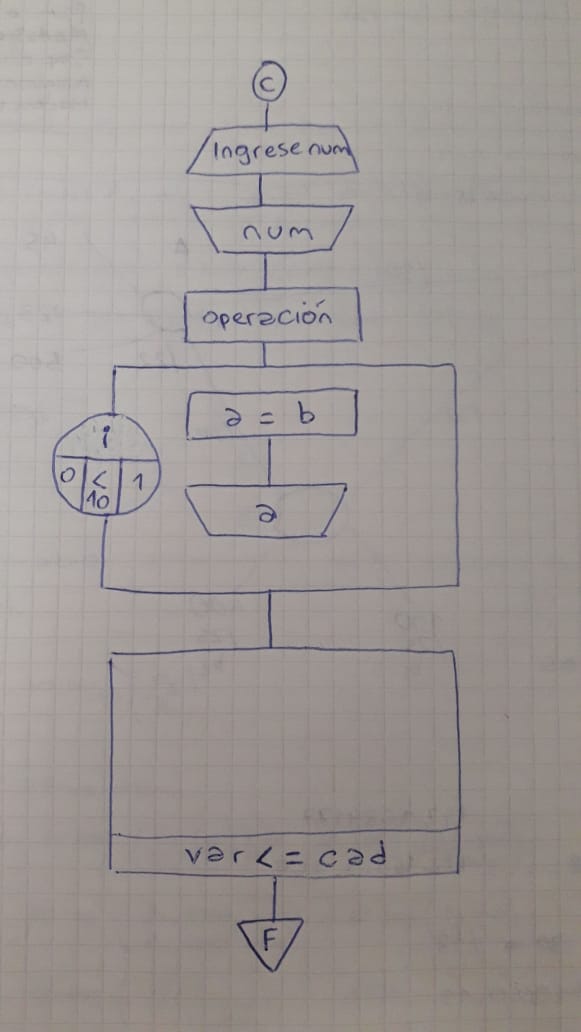 C
Ingrese num
num
operación
a = b
i
0 < 10 1
a
var <= cad
F